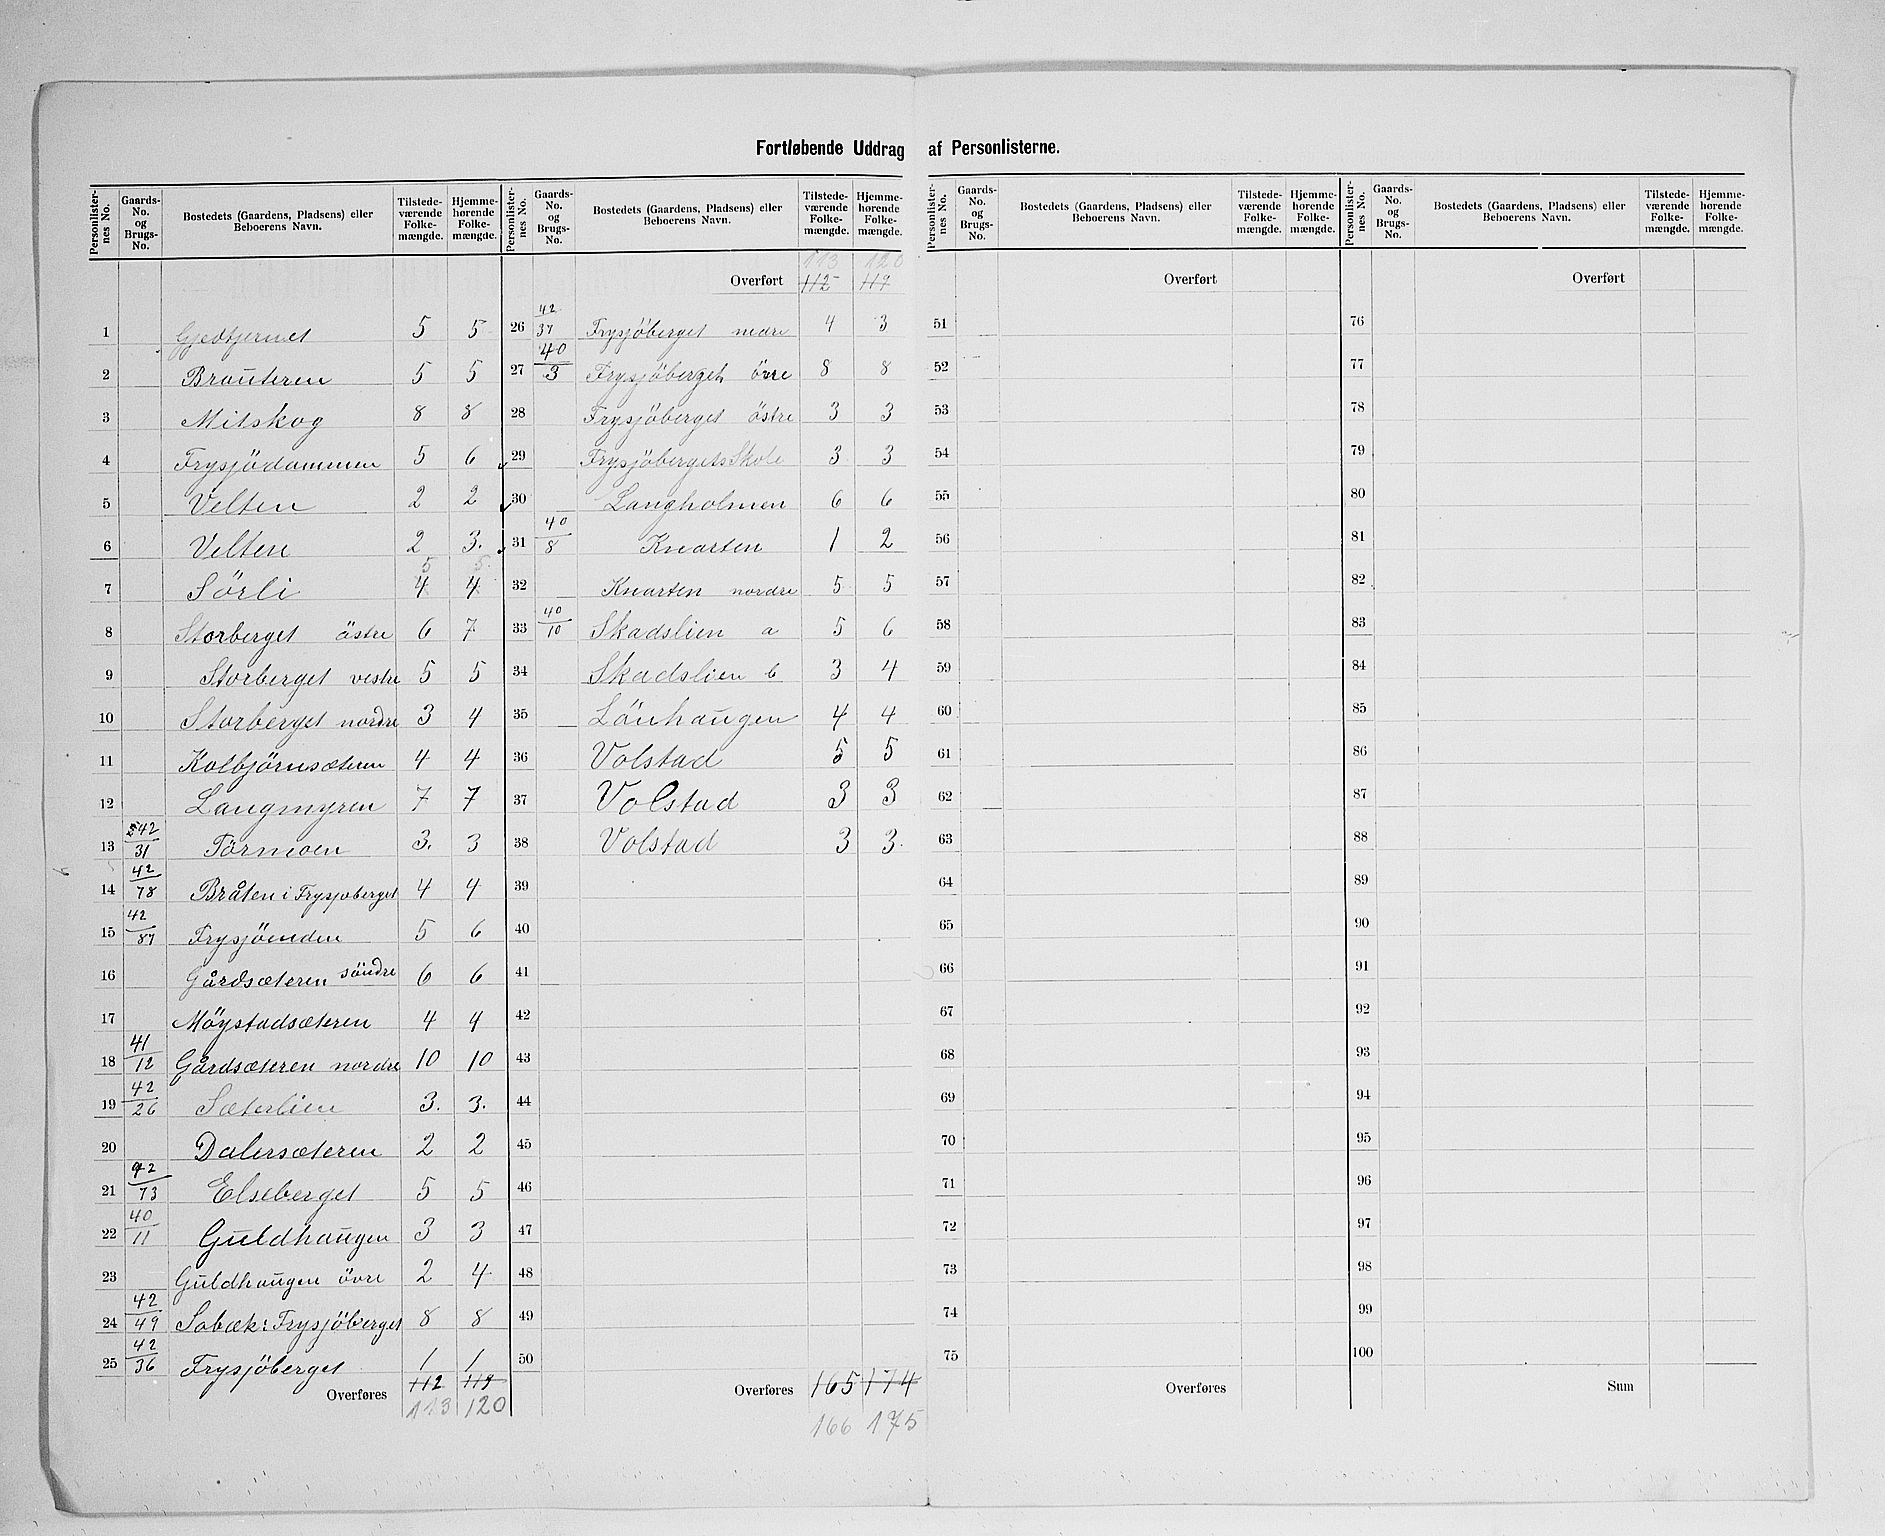 Fortløbende Uddrag af Personlisterne.
Personlister-nes No. | Gaards-No. og Brugs-No. | Bostedets (Gaardens, Pladsens) eller Beboerens Navn. | Tilstede-værende Folke-mængde. | Hjemme-hørende Folke-mængde.
1 Gjedtjernet 5 5
2 Braüteren 5 5
3 Mitskog 8 8
4 Frysjödammen 5 6
5 Velten 2 2
6 Velten 2 3.
7 Sörli 4 5 4 5
8 Storberget östre 6 7
9 Storberget vestre 5 5
10 Storberget nordre 3 4
11 Kolbjörnsæteren 4 4
12 Langmyren 7 7
13 42/31 Törmoen 3. 3
14 42/78 Bråten i Frysjoberget 4 4
15 42/87 Frysjöenden 5 6
16 Gårdsæteren söndre 6 6
17 Möystadsæteren 4 4
18 41/12 Gårdsæteren nordre 10 10
19 42/26 Sæterlien 3. 3.
20 Dalersæteren 2 2
21 42/73 Elseberget 5 5
22 40/11 Guldhaugen 3 3
23 Guldhaugen övre 2 4
24 42/49 Sobæk: Frysjöberget 8 8
25 42/36 Frysjöberget 1 1
Overføres 112 119
113 120
Personlister-nes No. | Gaards-No. og Brugs-No. | Bostedets (Gaardens, Pladsens) eller Beboerens Navn. | Tilstede-værende Folke-mængde. | Hjemme-hørende Folke-mængde.
113 120
Overført 112 119
26 42/37 Frysjöberget nedre 4 3
27 40/3 Frysjöberget övre 8 8
28 Frysjöberget östre 3 3
29 Frysjöbergets Skole 3 3
30 Langholmen 6 6
31 40/8 Knarten 1 2
32 Knarten nordre 5 5
33 40/10 Skadslien a 5 6
34 Skadslien b 3 4
35 Lönhaugen 4 4
36 Volstad 5 5
37 Volstad 3 3
38 Volstad 3 3.
39
40
41
42
43
44
45
46
47
48
49
50
Overføres 165 174
166 175
Personlister-nes No. | Gaards-No. og Brugs-No. | Bostedets (Gaardens, Pladsens) eller Beboerens Navn. | Tilstede-værende Folke-mængde. | Hjemme-hørende Folke-mængde.
Overført
51
52
53
54
55
56
57
58
59
60
61
62
63
64
65
66
67
68
69
70
71
72
73
74
75
Overføres
Personlister-nes No. | Gaards-No. og Brugs-No. | Bostedets (Gaardens, Pladsens) eller Beboerens Navn. | Tilstede-værende Folke-mængde. | Hjemme-hørende Folke-mængde.
Overført
76
77
78
79
80
81
82
83
84
85
86
87
88
89
90
91
92
93
94
95
96
97
98
99
100
Sum